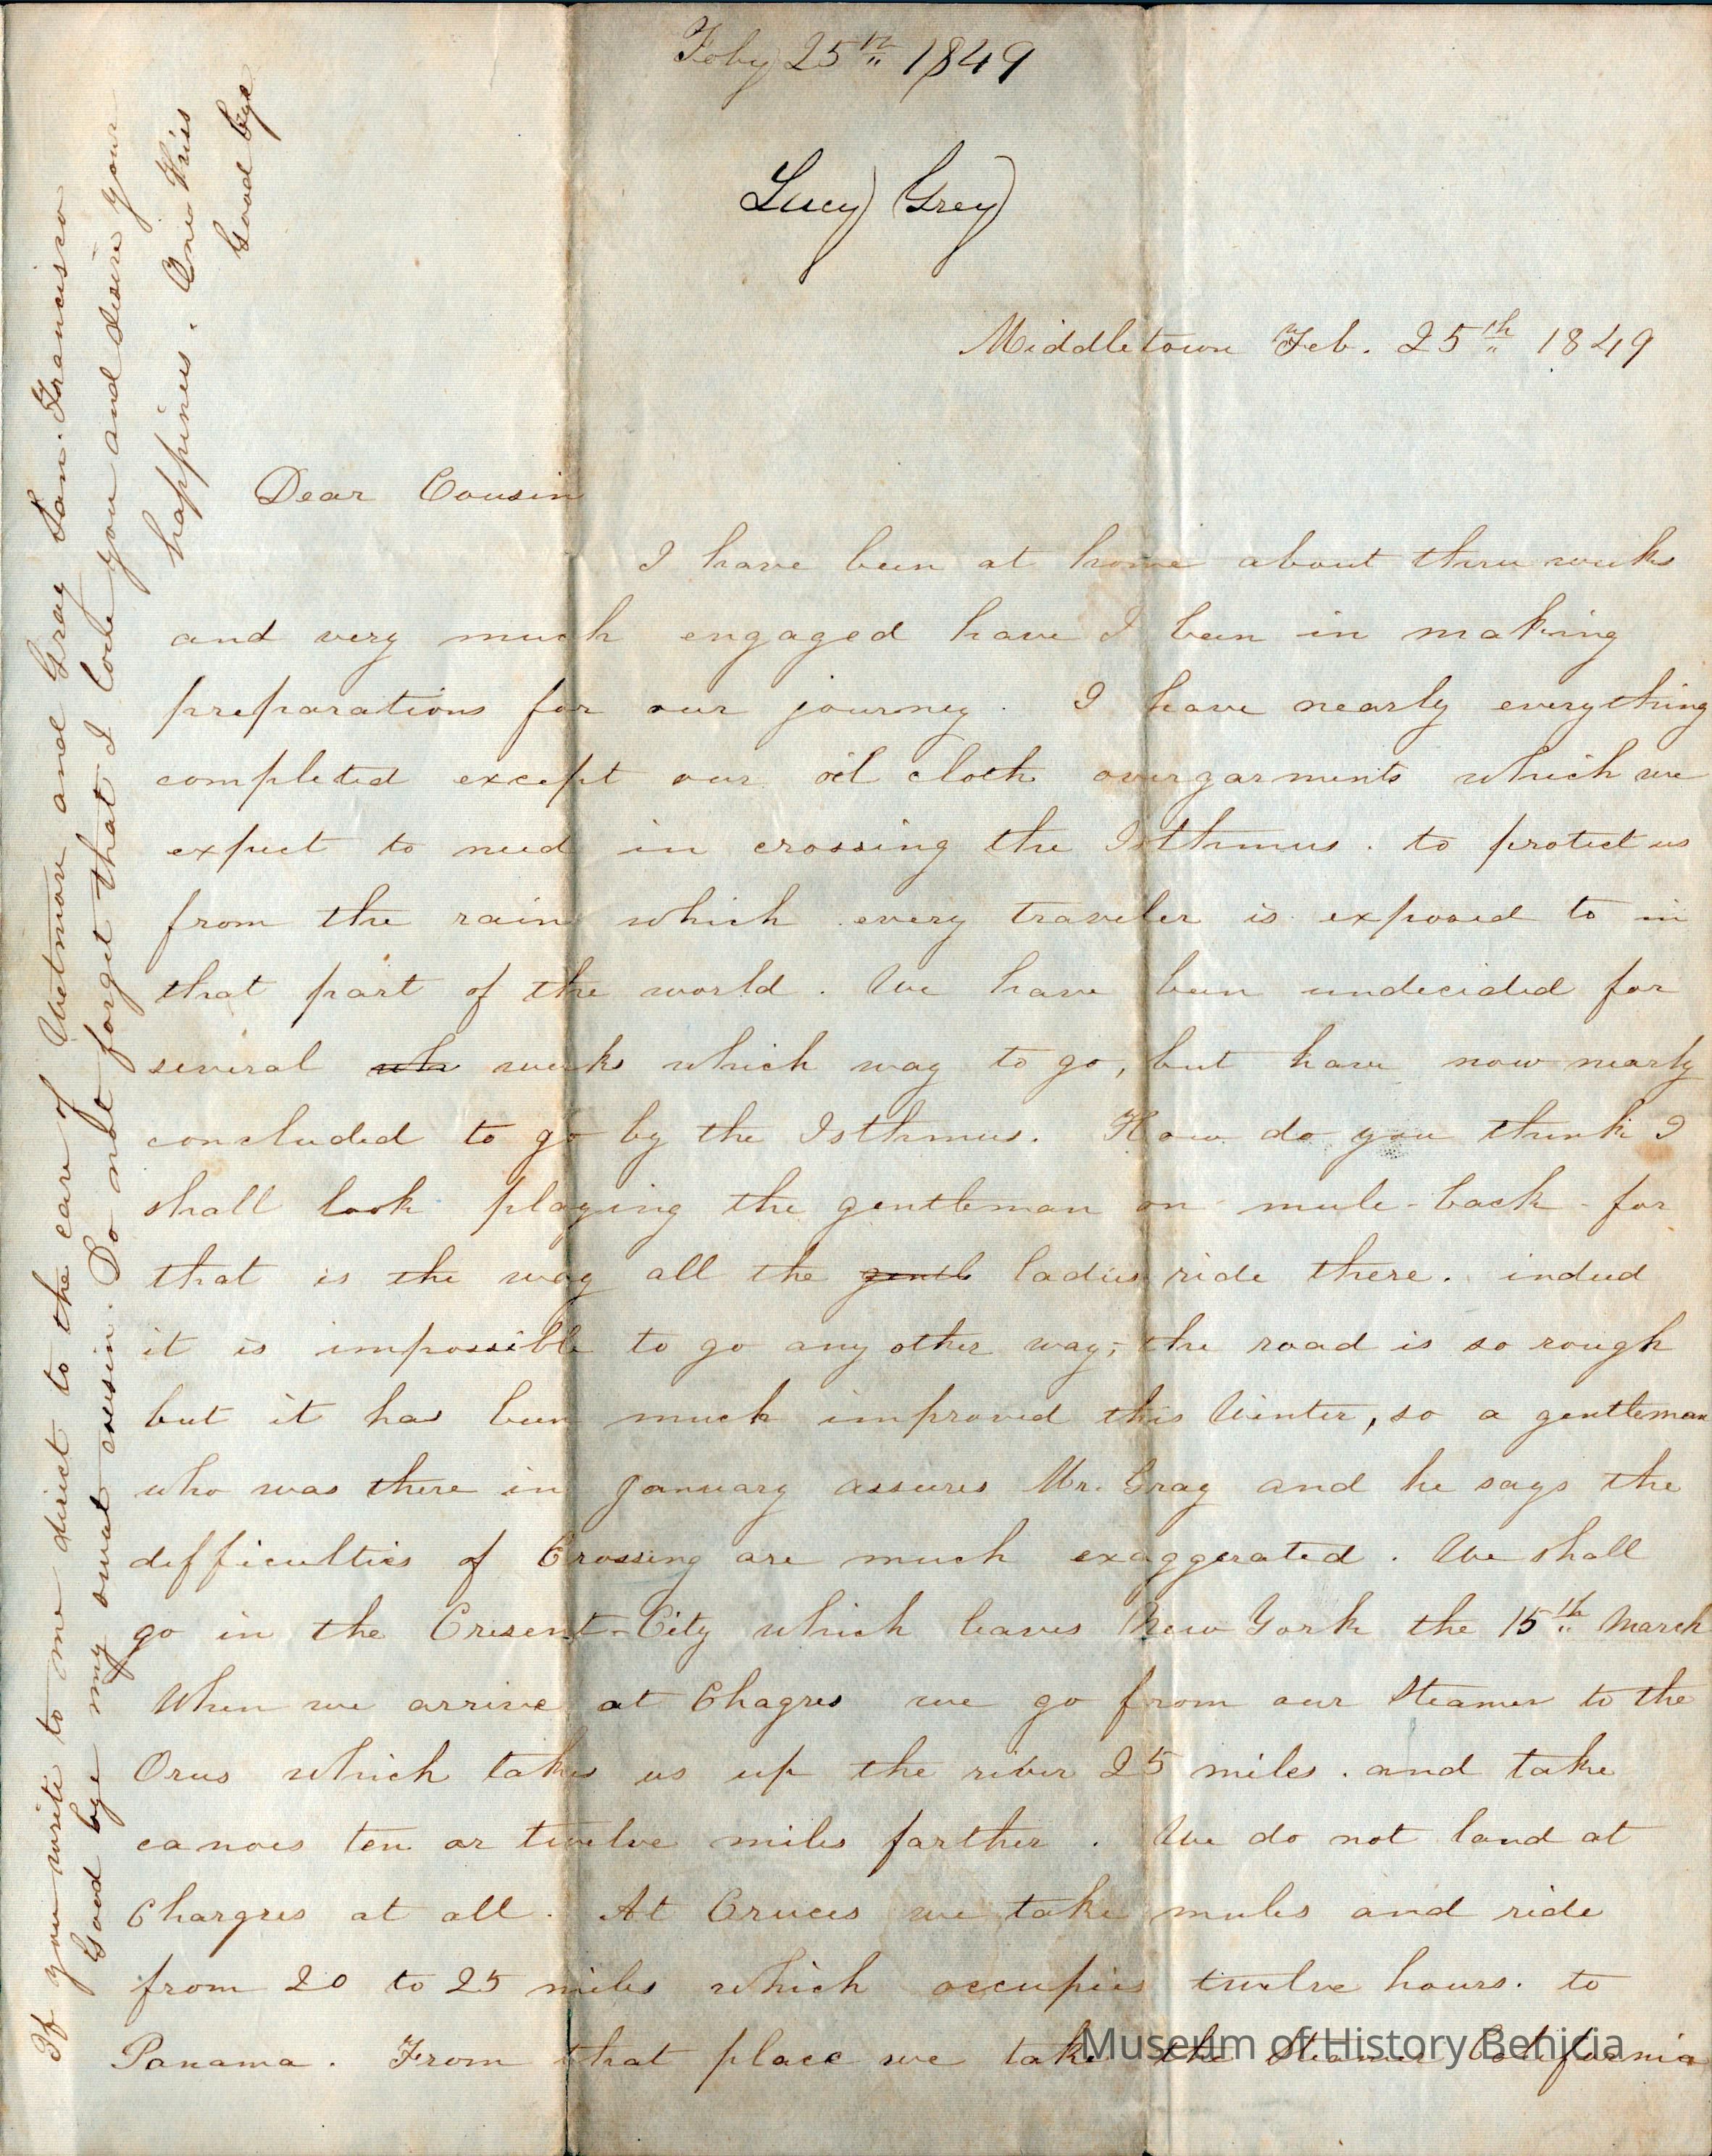 Feby 25th 1849
Lucy Grey
Middletown Feb. 25th 1849
Dear Cousin
I have been at home about three weeks
and very much engaged have I been in making
preparations for our journey. I have nearly everything
completed except our oil cloth overgarments which we
expect to need in crossing the Isthmus. to protect us
from the rain which every traveler is exposed to in
that part of the world. We have been undecided for
several wh weeks which way to go, but have now nearly
concluded to go by the Isthmus. How do you think I
shall look playing the gentleman on mule-back - for
that is the way all the gentl ladies ride there. indeed
it is impossible to go any other way; the road is so rough
but it has been much improved this Winter, so a gentleman
who was there in January assures Mr. Gray and he says the
difficulties of Crossing are much exaggerated. We shall
go in the Cresent-City which leaves New York the 15th March
When we arrive at Chagres we go from our Steamer to the
Orus which takes us up the river 25 miles. and take
canoes ten or twelve miles farther. We do not land at
Chargres at all. At Cruces we take mules and ride
from 20 to 25 miles which occupies twelve hours. to
Panama. From that place we take the Steamer California
If you write to me direct to the care of Wetmore and Gray San. Francisco
Good bye my sweet cousin. Do not forget that I love you and desire your
happiness. One Kiss
Good bye
Museum of History Benicia